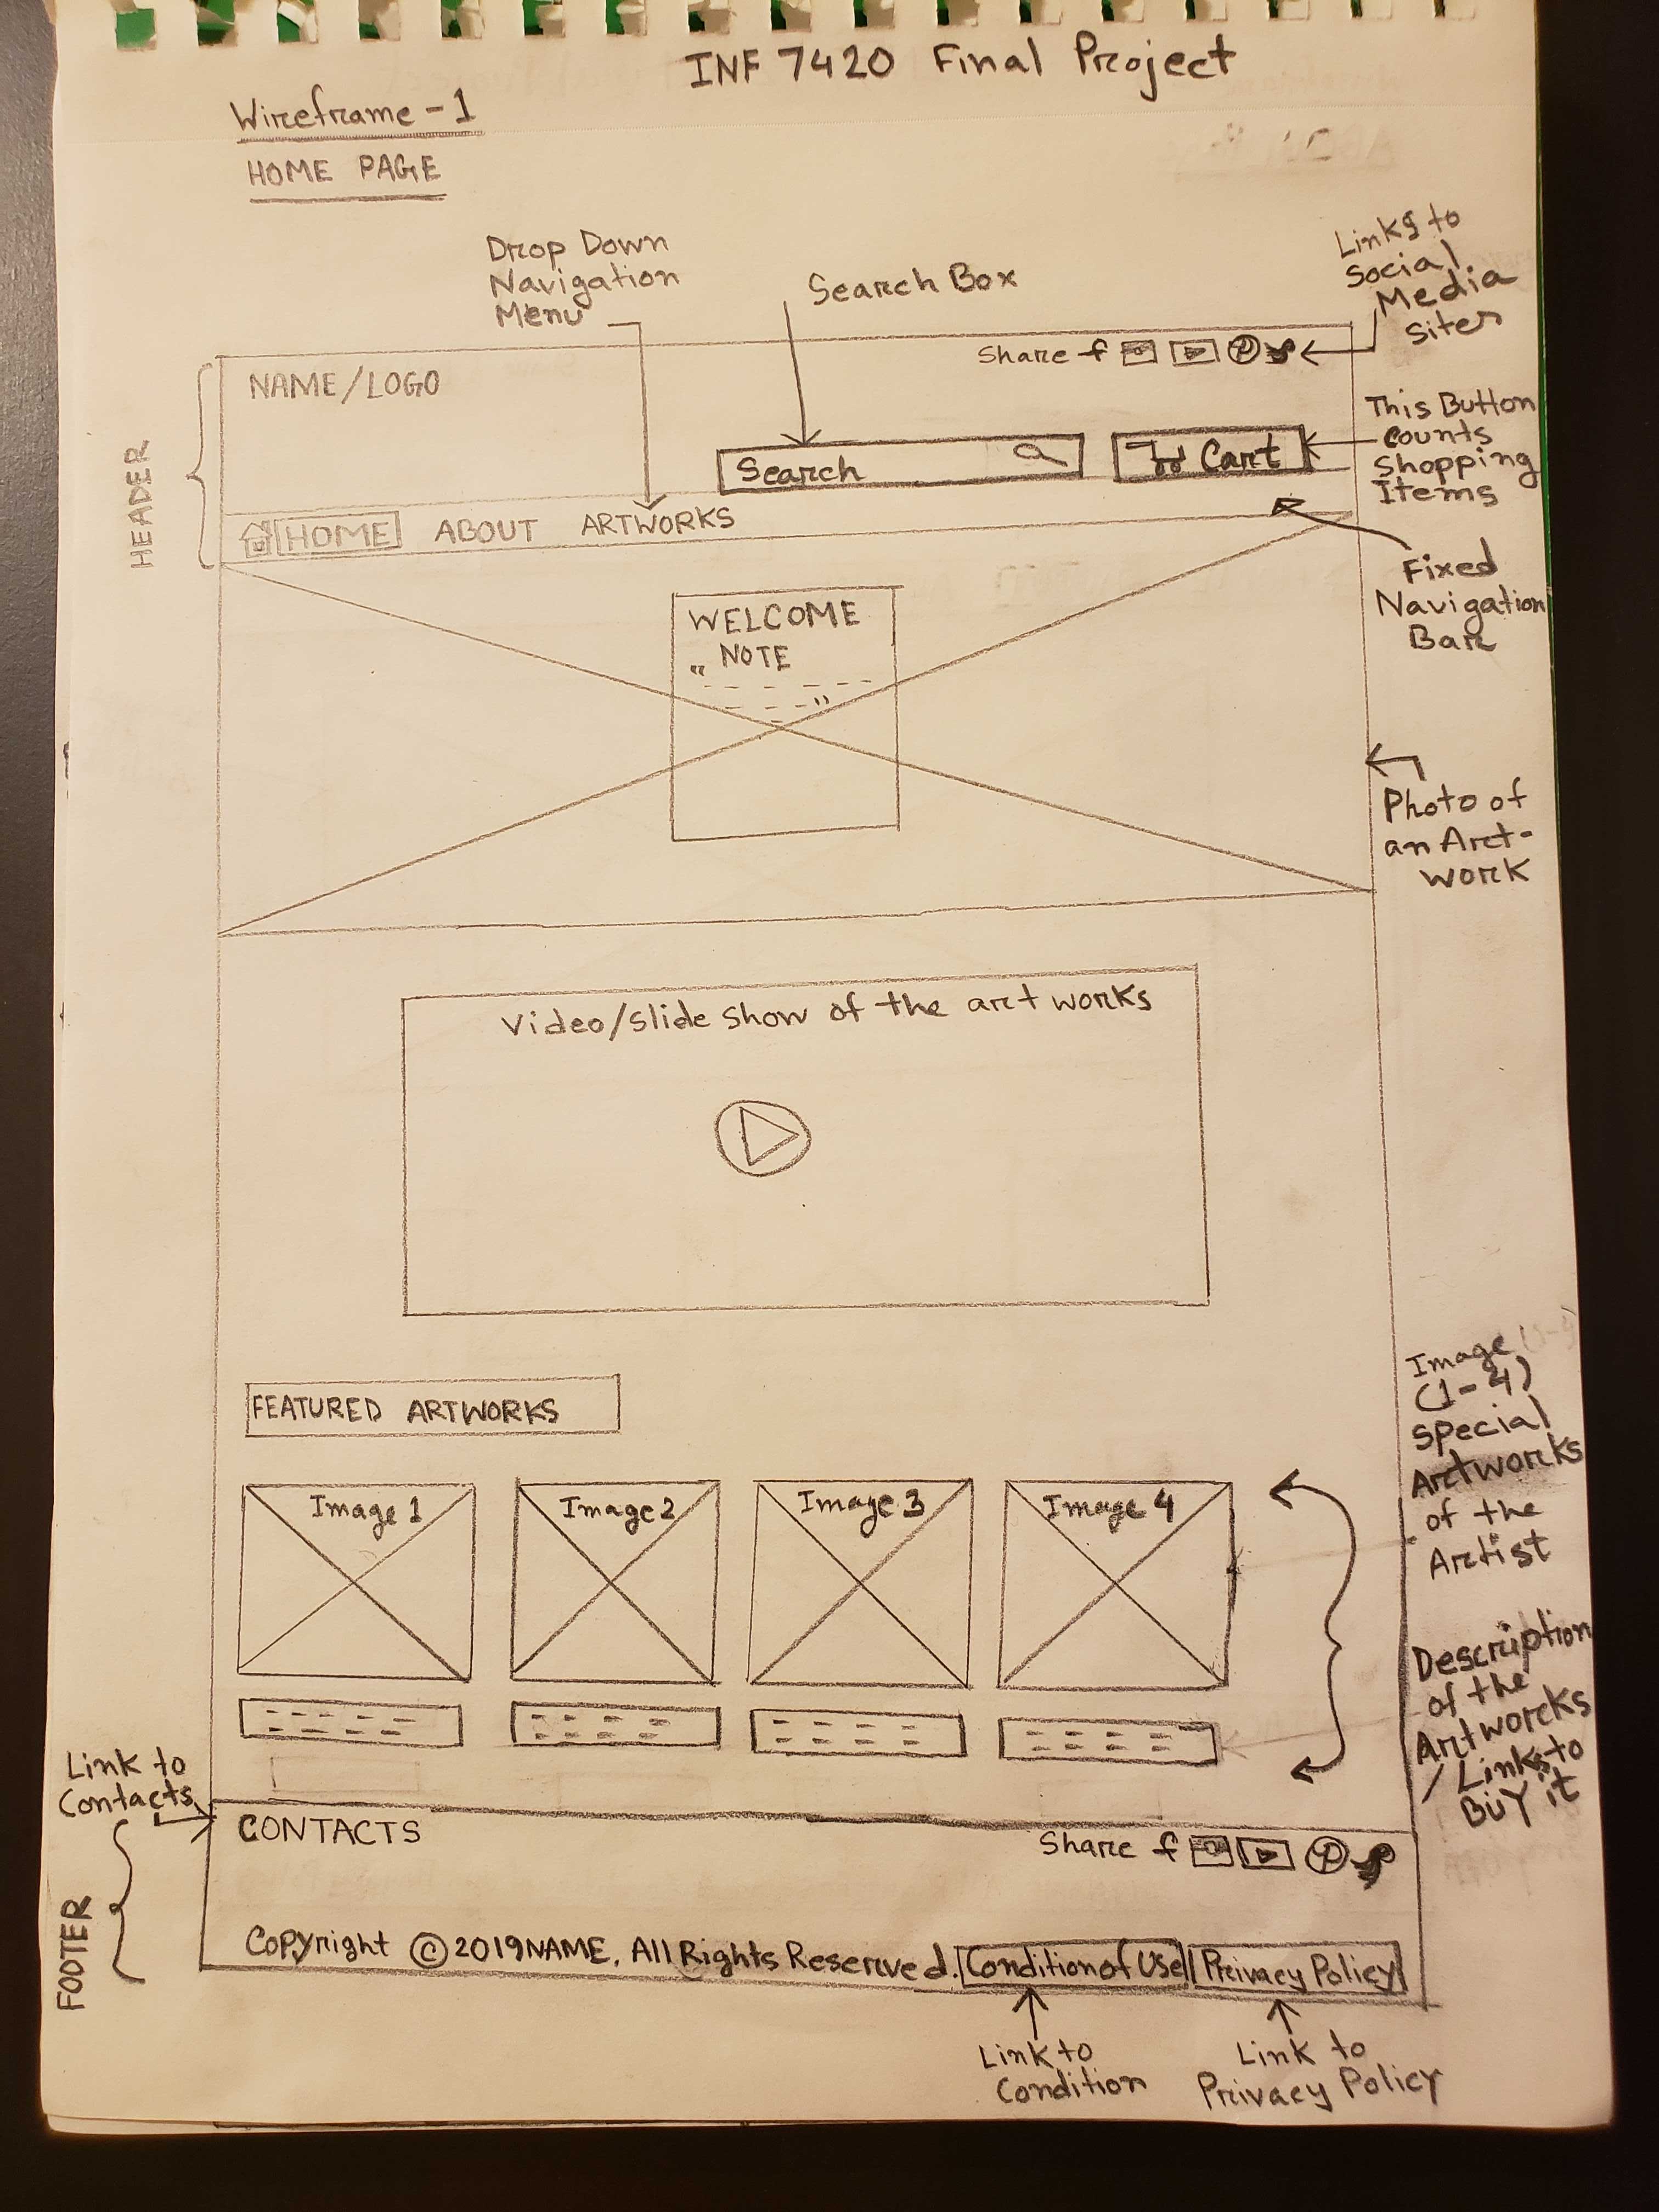 INF 7420 Final Project
Wireframe - 1
HOME PAGE
Drop Down
Navigation
Menu
Search Box
Links to
Social
Media
Sites
Share
NAME/LOGO
This Button
Counts
Shopping
Items
Search
Cart
HEADER
HOME ABOUT ARTWORKS
Fixed
Navigation
Bar
WELCOME
" NOTE
"
Photo of
an Art-
work
Video/Slide show of the art works
FEATURED ARTWORKS
Image
(1-4)
Special
Artworks
of the
Artist
Image 1 Image 2 Image 3 Image 4
Description
of the
Artworks
/ Links to
BUY it
Link to
Contacts
CONTACTS
Share
FOOTER
Copyright © 2019 NAME. All Rights Reserved. Condition of Use | Privacy Policy
Link to
Condition
Link to
Privacy Policy